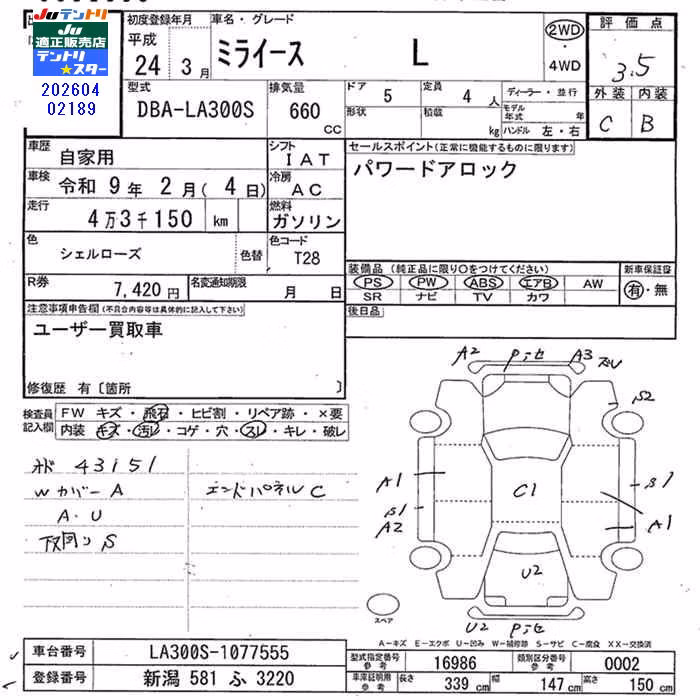 JUテントリ
JU適正販売店
テントリ
★スター
202604
02189
初度登録年月
平成
24 3月
車名・グレード
ミライース L
2WD
・
4WD
評価点
3.5
外装 内装
C B
型式
DBA-LA300S
排気量
660
CC
ドア 5
定員 4 人
形状
積載 kg
ディーラー・並行
モデル年式 年
ハンドル 左・右
車歴
自家用
シフト
IAT
車検
令和 9年 2月( 4日)
冷房
AC
走行
4万3千150 km
燃料
ガソリン
色
シェルローズ
色替
色コード
T28
R券
7,420円
名変通知期限
月 日
セールスポイント(正常に機能するものに限ります)
パワードアロック
装備品(純正品に限り○をつけてください)
PS PW ABS エアB AW
SR ナビ TV カワ
新車保証書
有・無
後日品
注意事項申告欄(不具合内容等は具体的に記入して下さい)
ユーザー買取車
修復歴 有〔箇所 〕
検査員
記入欄
FW キズ・飛石・ヒビ割・リペア跡・×要
内装 キズ・汚レ・コゲ・穴・スレ・キレ・破レ
43151
Wカバー A
A・U
下回り S
エンドパネル C
A2
A3
S2
A1
S1
A2
C1
S1
A1
U2
U2
スペア
A-キズ E-エクボ U-凹み W-補修跡 S-サビ C-腐食 XX-交換済
車台番号
LA300S-1077555
登録番号
新潟 581 ふ 3220
型式指定番号
参考
16986
類別区分番号
参考
0002
車庫証明用
参考
長さ 339 cm 幅 147 cm 高さ 150 cm